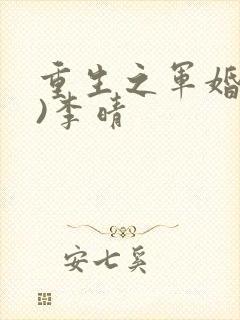 重生之军婚
)李晴
安七奚